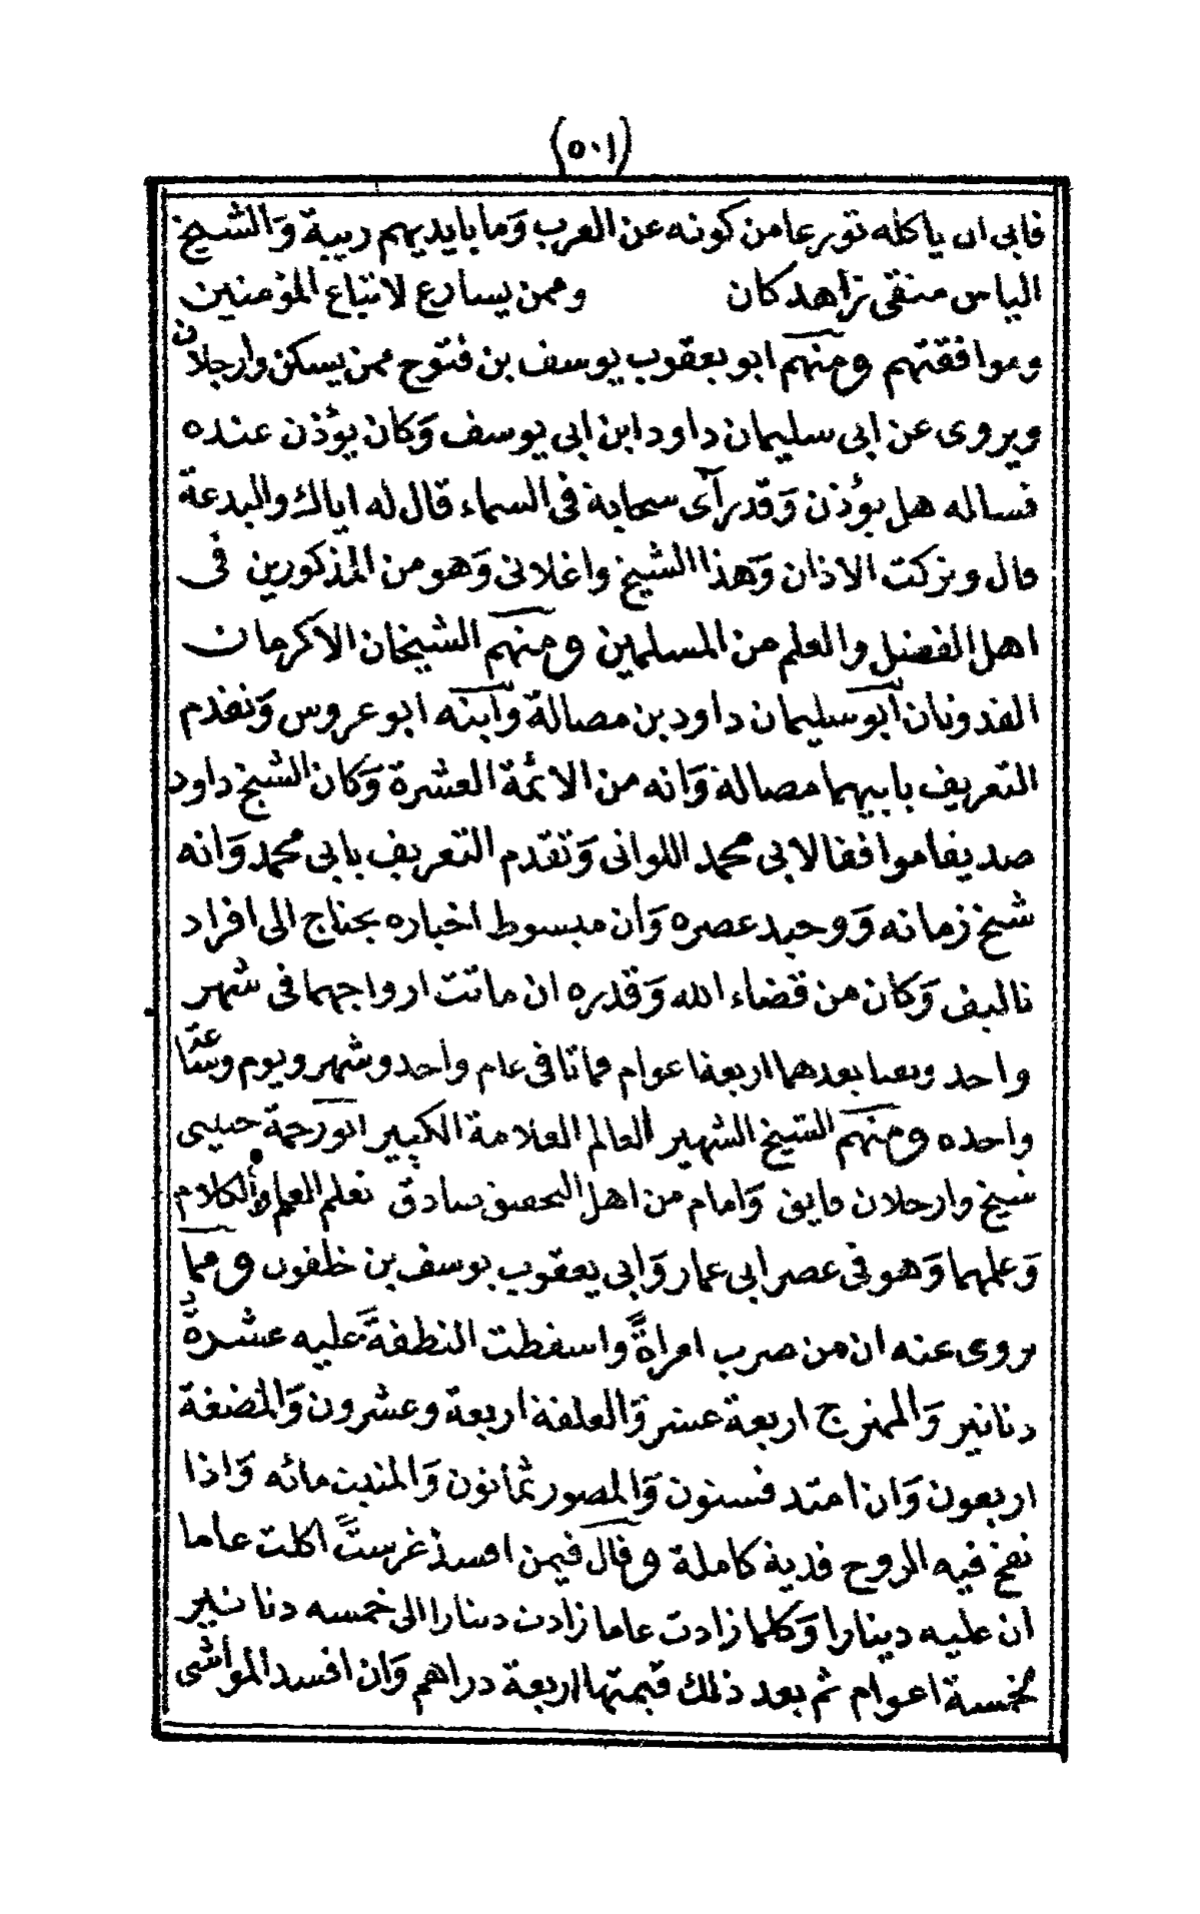 (٥٠١)
فابى ان ياكله تورعا من كونه عن العرب وما بايديهم ريبة والشيخ
الياس متقى زاهد كان وممن يسارع لاتباع المؤمنين
وموافقتهم ومنهم ابو يعقوب يوسف بن فتوح ممن يسكن وارجلان
ويروى عن ابى سليمان داود ابن ابى يوسف وكان يؤذن عنده
فساله هل يؤذن وقد رآى سحابة فى السماء قال له اياك والبدعة
قال وتركت الاذان وهذا الشيخ واغلانى وهو من المذكورين فى
اهل الفضل والعلم من المسلمين ومنهم الشيخان الاكرمان
القدوتان ابو سليمان داود بن مصالة وابنه ابو عروس وتقدم
التعريف بابيهما مصالة وانه من الائمة العشرة وكان الشيخ داود
صديقا موافقا لابى محمد اللوانى وتقدم التعريف بابى محمد وانه
شيخ زمانه ووحيد عصره وان مبسوط اخباره يحتاج الى افراد
تاليف وكان من قضاء الله وقدره ان ماتت ازواجهما فى شهر
واحد وبقيا بعدهما اربعة اعوام فماتا فى عام واحد وشهر ويوم وساعة
واحده ومنهم الشيخ الشهير العالم العلامة الكبير ابو رحمة
شيخ وارجلان فايق وامام من اهل التحقيق صادق تعلم العلم والكلام
وعلمهما وهو فى عصر ابى عمار وابى يعقوب يوسف بن خلفون ومما
يروى عنه ان من ضرب امراة واسقطت النطفة عليه عشرة
دنانير والممزج اربعة عشر والعلقة اربعة وعشرون والمضغة
اربعون وان امتد فستون والمصور ثمانون والمنبت مائه واذا
نفخ فيه الروح فدية كاملة وقال فيمن افسد غرست اكلت عاما
ان عليه دينارا وكلما زادت عاما زادت دينارا الى خمسه دنانير
لخمسة اعوام ثم بعد ذلك قيمتها اربعة دراهم وان افسد المواشى